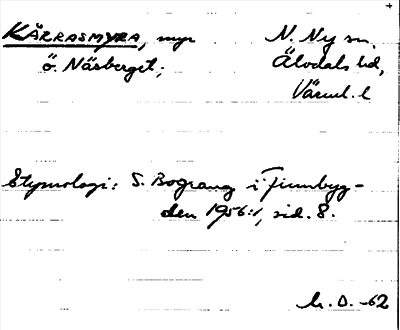 KÄRRASMYRA, myr N. Ny sn,
ö. Näsberget; Älvdals hd,
Värml. l
Etymologi: S. Bograng i Finnbyg-
den 1956:1, sid. 8.
D. -62